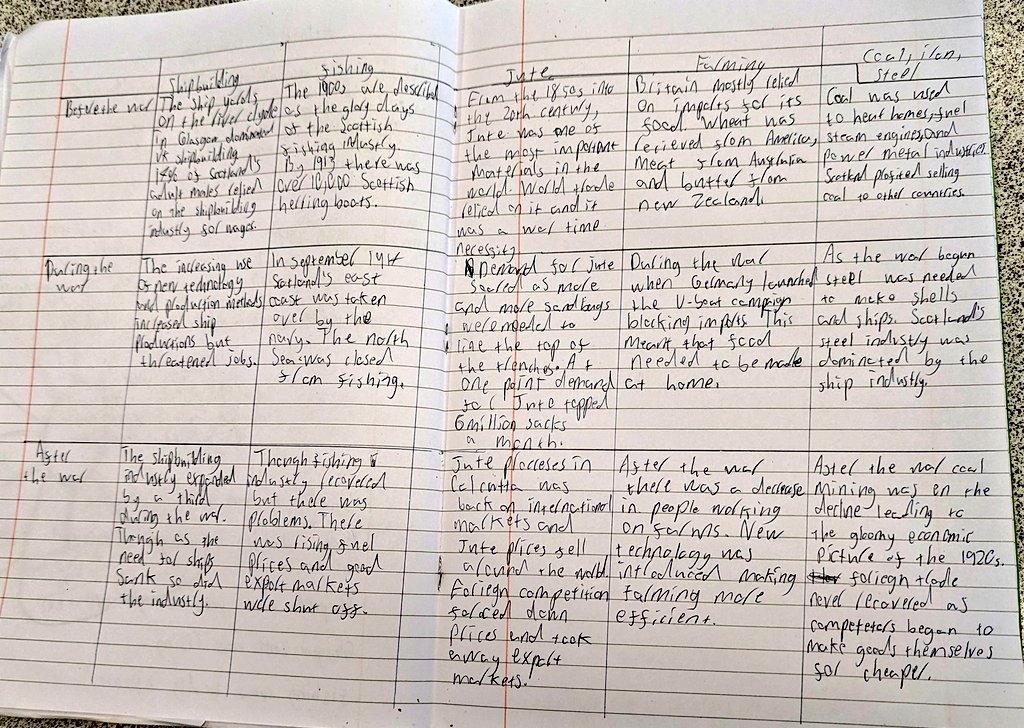 Shipbuilding
fishing
Jute
Farming
Coal, iron,
steel
Before the war
The ship yards
on the river clyde
in Glasgow dominated
UK shipbuilding
14% of Scotland's
adult males relied
on the shipbuilding
industry for wages.
The 1900s are described
as the glory days
of the Scottish
fishing industry.
By 1913 there was
over 10,000 Scottish
herring boats.
From the 1850s into
the 20th century,
Jute was one of
the most important
materials in the
world. World trade
relied on it and it
was a war time
necessity
Britain mostly relied
on imports for its
food. Wheat was
retieved from America,
Meat from Australia
and butter from
new Zealand.
Coal was used
to heat homes, fuel
steam engines, and
power metal industries.
Scotland profited selling
coal to other countries.
During the
war
The increasing use
of new technology
and production methods
increased ship
productions but
threatened jobs.
In september 1914
Scotland's east
coast was taken
over by the
navy. The north
Sea was closed
from fishing.
Demand for jute
soared as more
and more sandbags
were needed to
line the top of
the trenches. At
one point demand
for Jute topped
6 million sacks
a month.
During the war
when Germany launched
the U-boat campaign
blocking imports This
meant that food
needed to be made
at home.
As the war began
steel was needed
to make shells
and ships. Scotland's
steel industry was
dominated by the
ship industry.
After
the war
The shipbuilding
industry expanded
by a third
during the war.
Though as the
need for ships
Sank so did
the industry.
Though fishing
industry recovered
but there was
problems. There
was rising fuel
prices and good
export markets
were shut off.
Jute proccesses in
Calcutta was
back on international
markets and
Jute prices fell
around the world.
Foriegn competition
forced down
prices and took
away export
markets.
After the war
there was a decrease
in people working
on farms. New
technology was
introduced making
farming more
efficient.
After the war coal
Mining was en the
decline leading to
the gloomy economic
picture of the 1920s.
foriegn trade
never recovered as
competeters began to
make goods themselves
for cheaper.